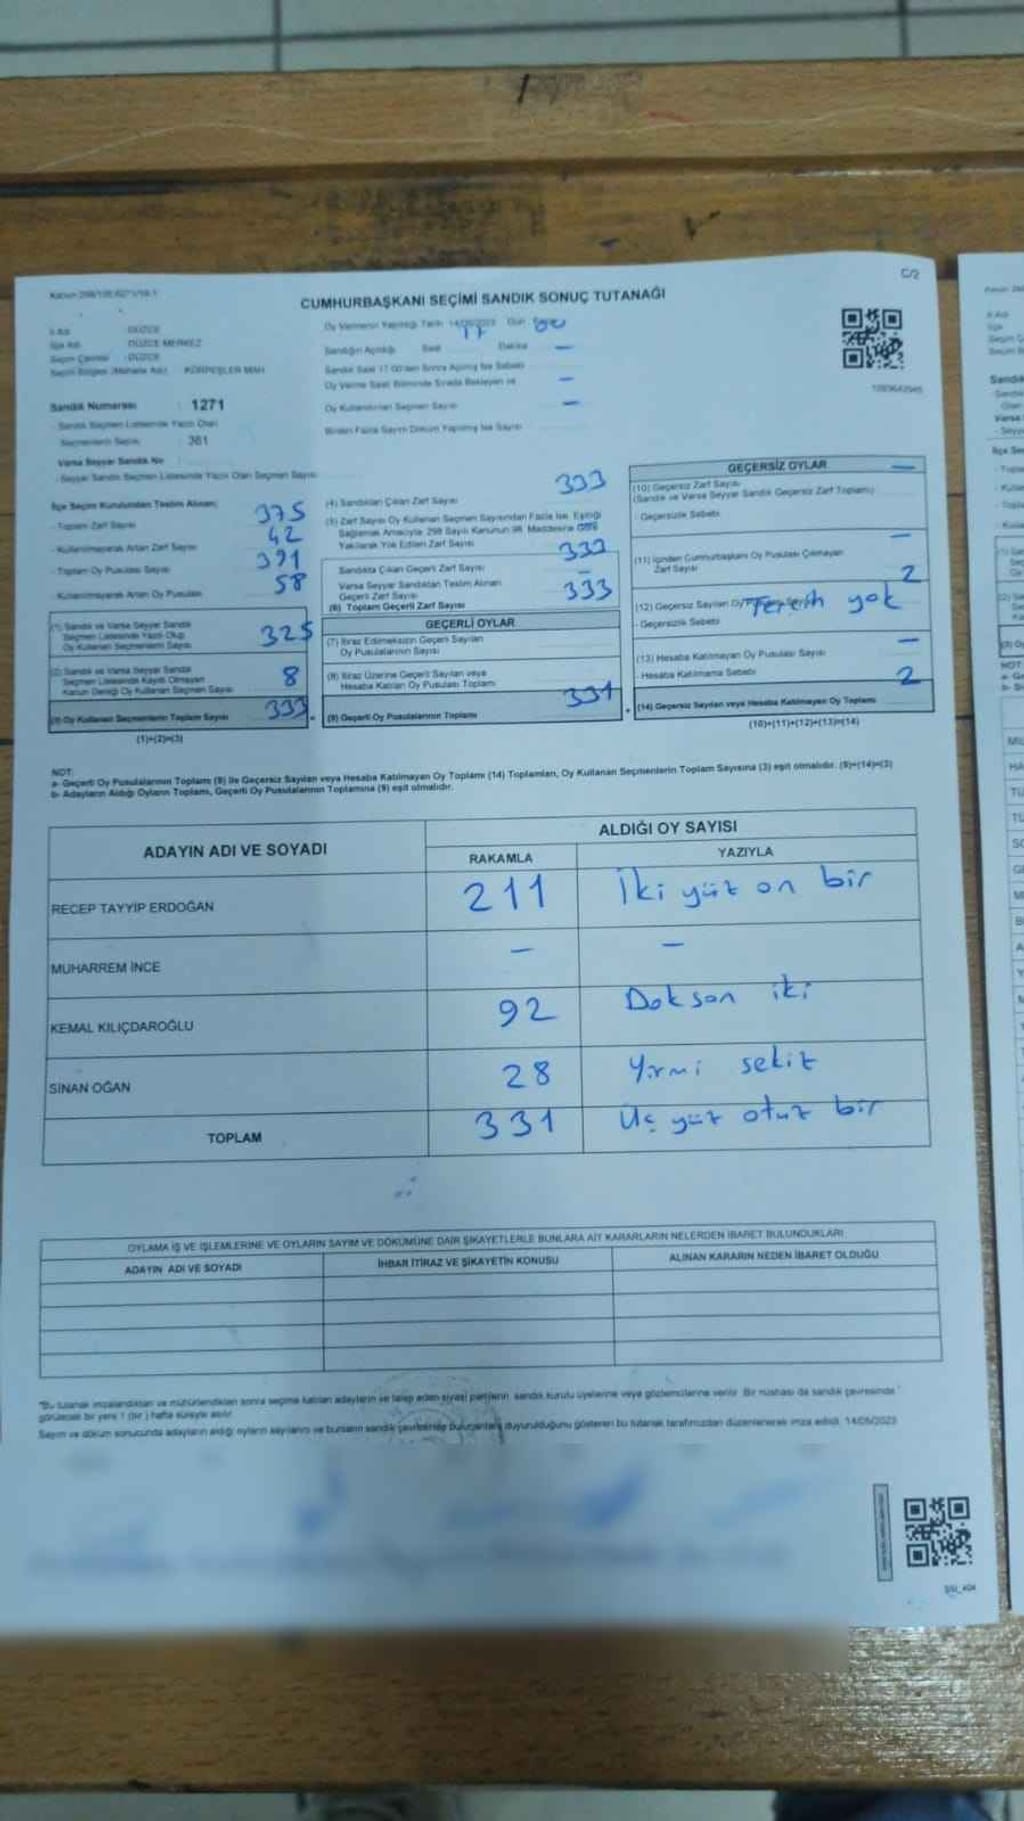 C/2
CUMHURBAŞKANI SEÇİMİ SANDIK SONUÇ TUTANAĞI
İl Adı DÜZCE
İlçe Adı DÜZCE MERKEZ
Seçim Çevresi DÜZCE
Seçim Bölgesi (Mahalle Adı) KÖRPEŞLER MAH
Sandık Numarası : 1271
Sandık Seçmen Listesinde Yazılı Olan
Seçmenlerin Sayısı 361
Varsa Seyyar Sandık No
Seyyar Sandık Seçmen Listesinde Yazılı Olan Seçmen Sayısı
Oy Vermenin Yapıldığı Tarih 14/05/2023 Gün
Sandığın Açıldığı Saat 17 Dakika 00
Sandık Saat 17.00'den Sonra Açılmış İse Sebebi —
Oy Verme Saati Bitiminde Sırada Bekleyen ve —
Oy Kullandırılan Seçmen Sayısı —
Birden Fazla Sayım Döküm Yapılmış İse Sayısı
İlçe Seçim Kurulundan Teslim Alınan;
- Toplam Zarf Sayısı 375
- Kullanılmayarak Artan Zarf Sayısı 42
- Toplam Oy Pusulası Sayısı 391
- Kullanılmayarak Artan Oy Pusulası 58
(1) Sandık ve Varsa Seyyar Sandık
Seçmen Listesinde Yazılı Olup
Oy Kullanan Seçmenlerin Sayısı 325
(2) Sandık ve Varsa Seyyar Sandık
Seçmen Listesinde Kayıtlı Olmayan
Kanun Gereği Oy Kullanan Seçmen Sayısı 8
(3) Oy Kullanan Seçmenlerin Toplam Sayısı 333
(1)+(2)=(3)
(4) Sandıktan Çıkan Zarf Sayısı 333
(5) Zarf Sayısı Oy Kullanan Seçmen Sayısından Fazla İse, Eşitliği
Sağlamak Amacıyla 298 Sayılı Kanunun 98. Maddesine Göre
Yakılarak Yok Edilen Zarf Sayısı —
Sandıkta Çıkan Geçerli Zarf Sayısı 333
Varsa Seyyar Sandıktan Teslim Alınan
Geçerli Zarf Sayısı —
(6) Toplam Geçerli Zarf Sayısı 333
GEÇERLİ OYLAR
(7) İtiraz Edilmeksizin Geçerli Sayılan
Oy Pusulalarının Sayısı
(8) İtiraz Üzerine Geçerli Sayılan veya
Hesaba Katılan Oy Pusulası Toplamı
(9) Geçerli Oy Pusulalarının Toplamı 331
GEÇERSİZ OYLAR
(10) Geçersiz Zarf Sayısı —
(Sandık ve Varsa Seyyar Sandık Geçersiz Zarf Toplamı)
- Geçersizlik Sebebi
(11) İçinden Cumhurbaşkanı Oy Pusulası Çıkmayan
Zarf Sayısı —
(12) Geçersiz Sayılan Oy 2
- Geçersizlik Sebebi Tercih yok
(13) Hesaba Katılmayan Oy Pusulası Sayısı —
- Hesaba Katılmama Sebebi
(14) Geçersiz Sayılan veya Hesaba Katılmayan Oy Toplamı 2
(10)+(11)+(12)+(13)=(14)
NOT:
a- Geçerli Oy Pusulalarının Toplamı (9) ile Geçersiz Sayılan veya Hesaba Katılmayan Oy Toplamı (14) Toplamları, Oy Kullanan Seçmenlerin Toplam Sayısına (3) eşit olmalıdır. (9)+(14)=(3)
b- Adayların Aldığı Oyların Toplamı, Geçerli Oy Pusulalarının Toplamına (9) eşit olmalıdır.
ADAYIN ADI VE SOYADI
ALDIĞI OY SAYISI
RAKAMLA YAZIYLA
RECEP TAYYİP ERDOĞAN 211 İki yüz on bir
MUHARREM İNCE — —
KEMAL KILIÇDAROĞLU 92 Doksan iki
SİNAN OĞAN 28 Yirmi sekiz
TOPLAM 331 Üç yüz otuz bir
OYLAMA İŞ VE İŞLEMLERİNE VE OYLARIN SAYIM VE DÖKÜMÜNE DAİR ŞİKAYETLERLE BUNLARA AİT KARARLARIN NELERDEN İBARET BULUNDUKLARI
ADAYIN ADI VE SOYADI İHBAR İTİRAZ VE ŞİKAYETİN KONUSU ALINAN KARARIN NEDEN İBARET OLDUĞU
"Bu tutanak imzalandıktan ve mühürlendikten sonra seçime katılan adayların ve talep eden siyasi partilerin, sandık kurulu üyelerine veya gözlemcilerine verilir. Bir nüshası da sandık çevresinde
görülecek bir yere 1 (bir) hafta süreyle asılır.
Sayım ve döküm sonucunda adayların aldığı oyların sayılarını ve bunların sandık çevresinde bulunanlara duyurulduğunu gösteren bu tutanak tarafımızdan düzenlenerek imza edildi. 14/05/2023